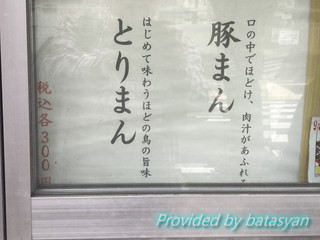 口の中でほどけ、肉汁があふれる
豚まん
はじめて味わうほどの鳥の旨味
とりまん
税込各300円
Provided by batasyan